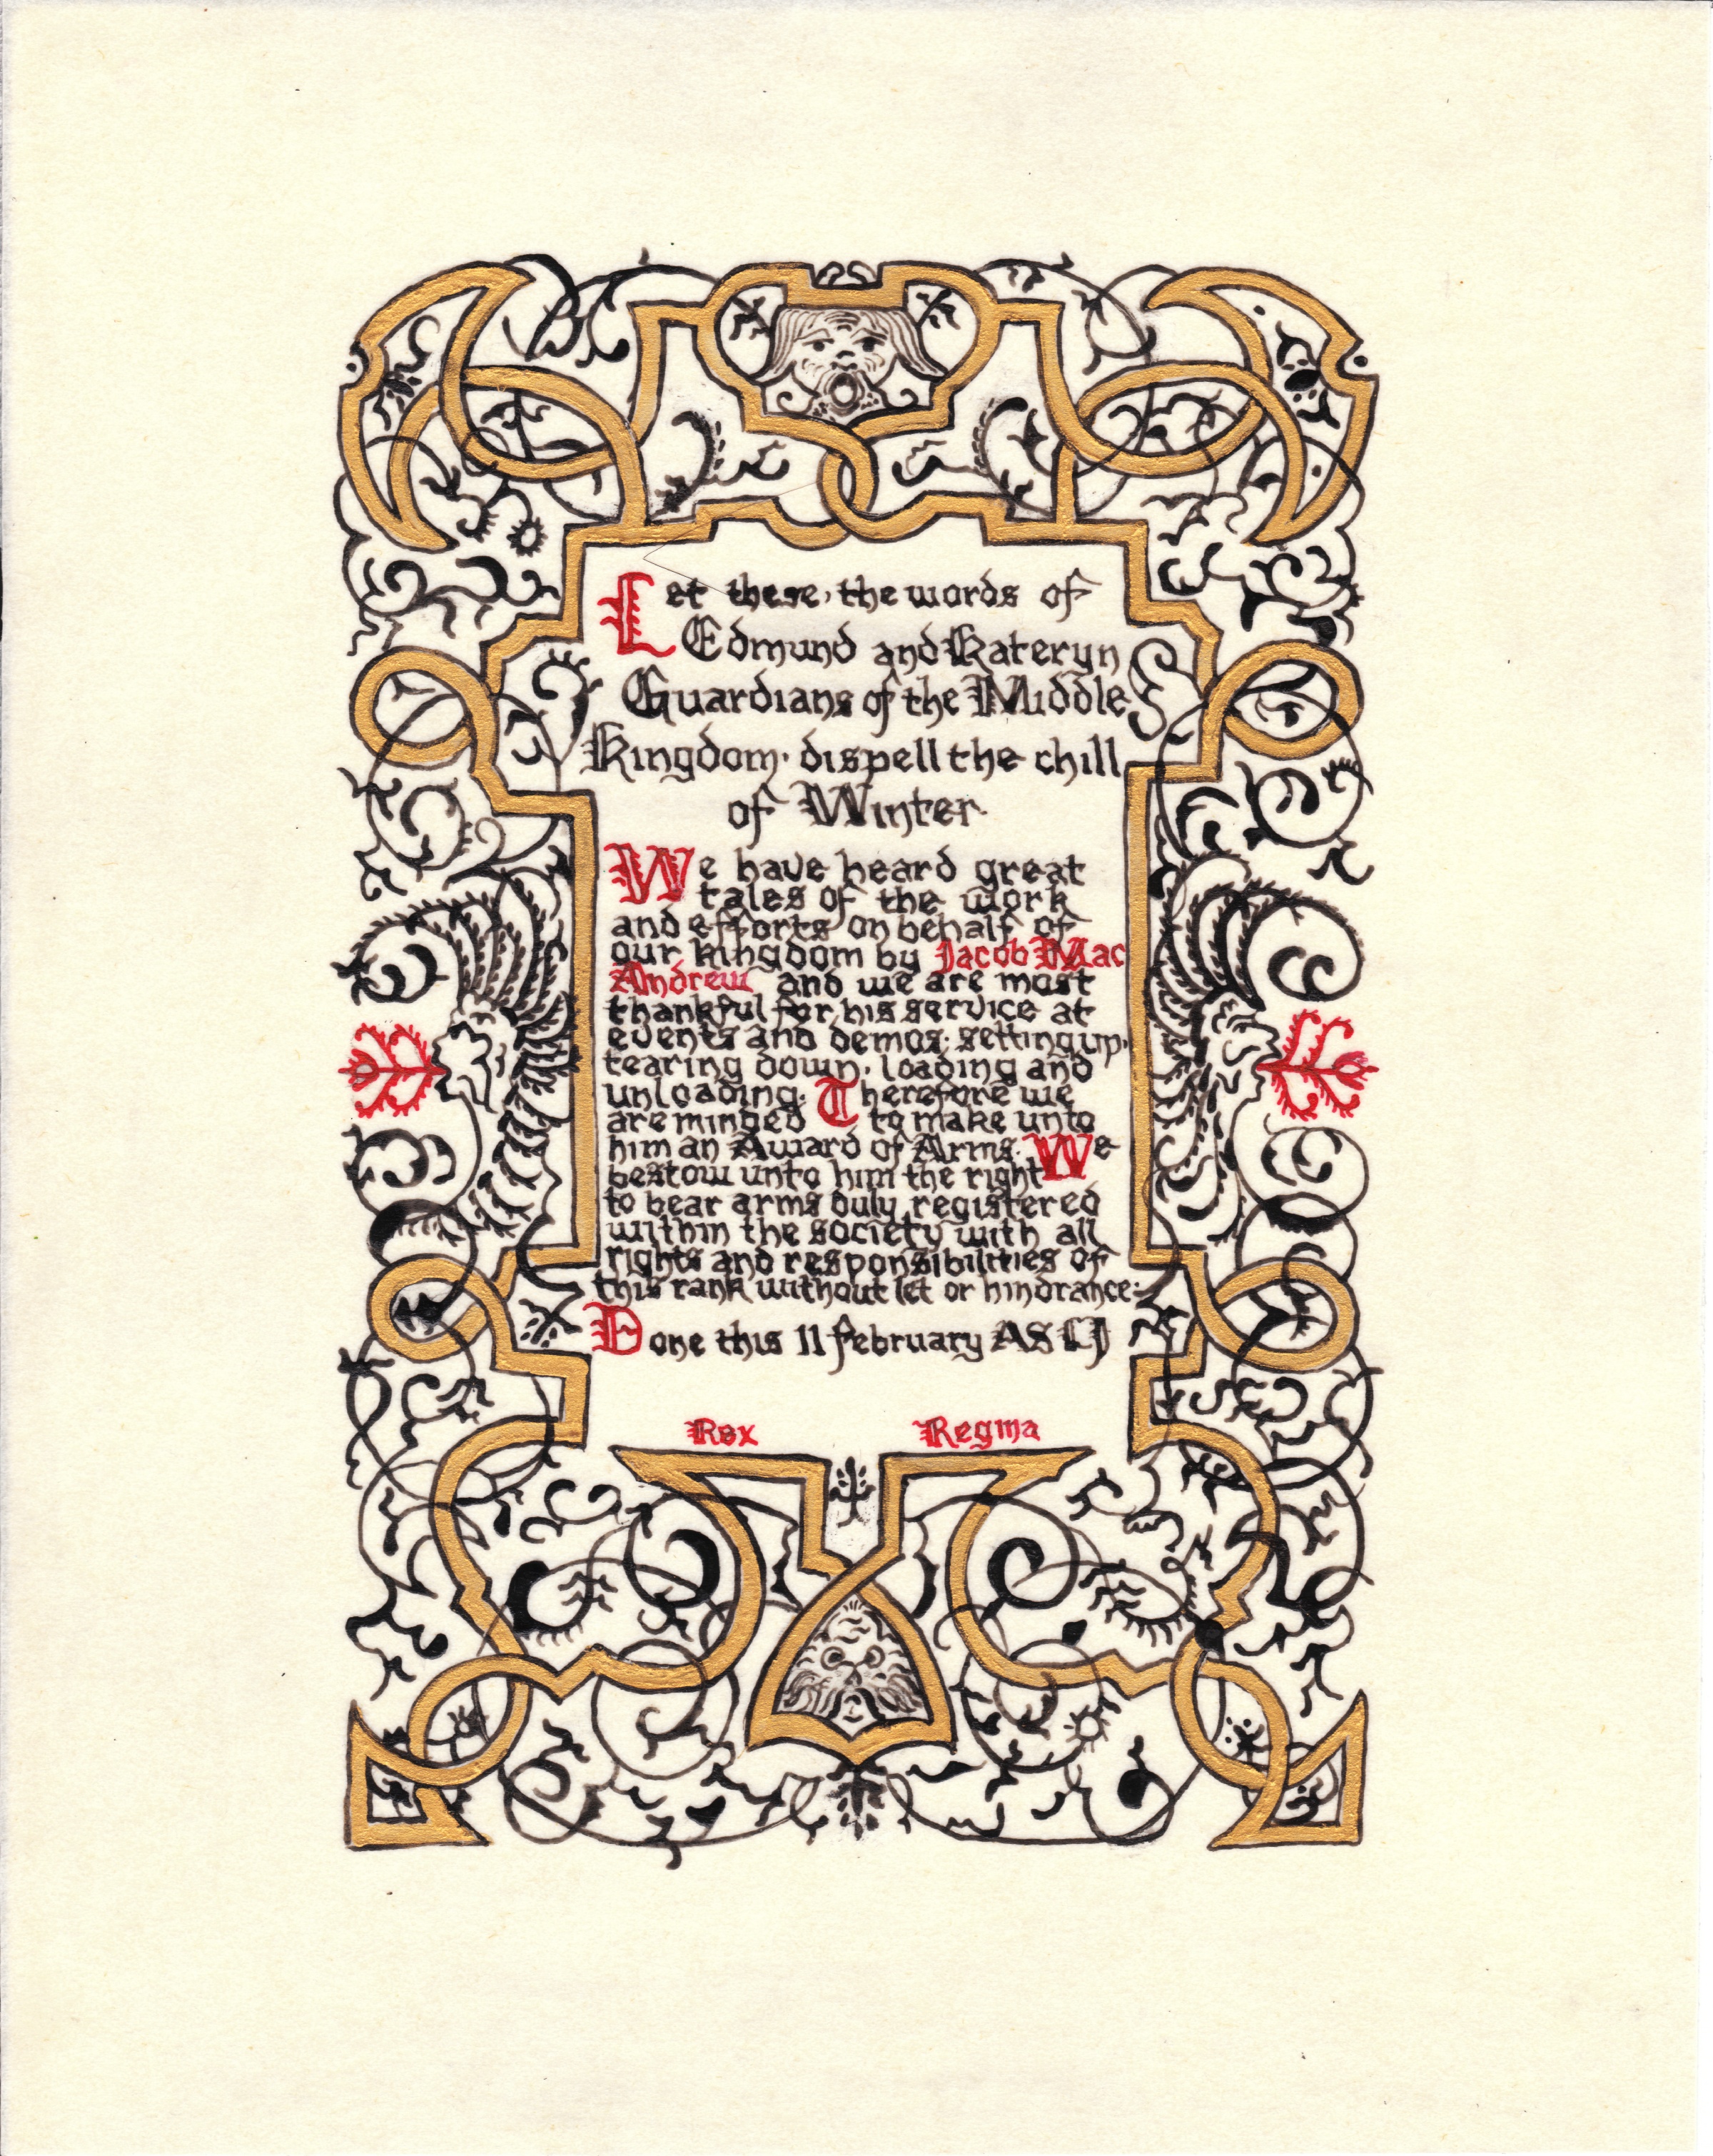 Let these, the words of
Edmund and Kateryn
Guardians of the Middle
Kingdom. dispell the chill
of Winter.
We have heard great
tales of the work
and efforts on behalf of
our kingdom by Jacob Mac
Andrew and we are most
thankful for his service at
events and demos; setting up,
tearing down, loading and
unloading. Therefore we
are minded to make unto
him an Award of Arms. We
bestow unto him the right
to bear arms duly registered
within the society with all
rights and responsibilities of
this rank without let or hindrance:
Done this 11 February AS LI
Rex Regina